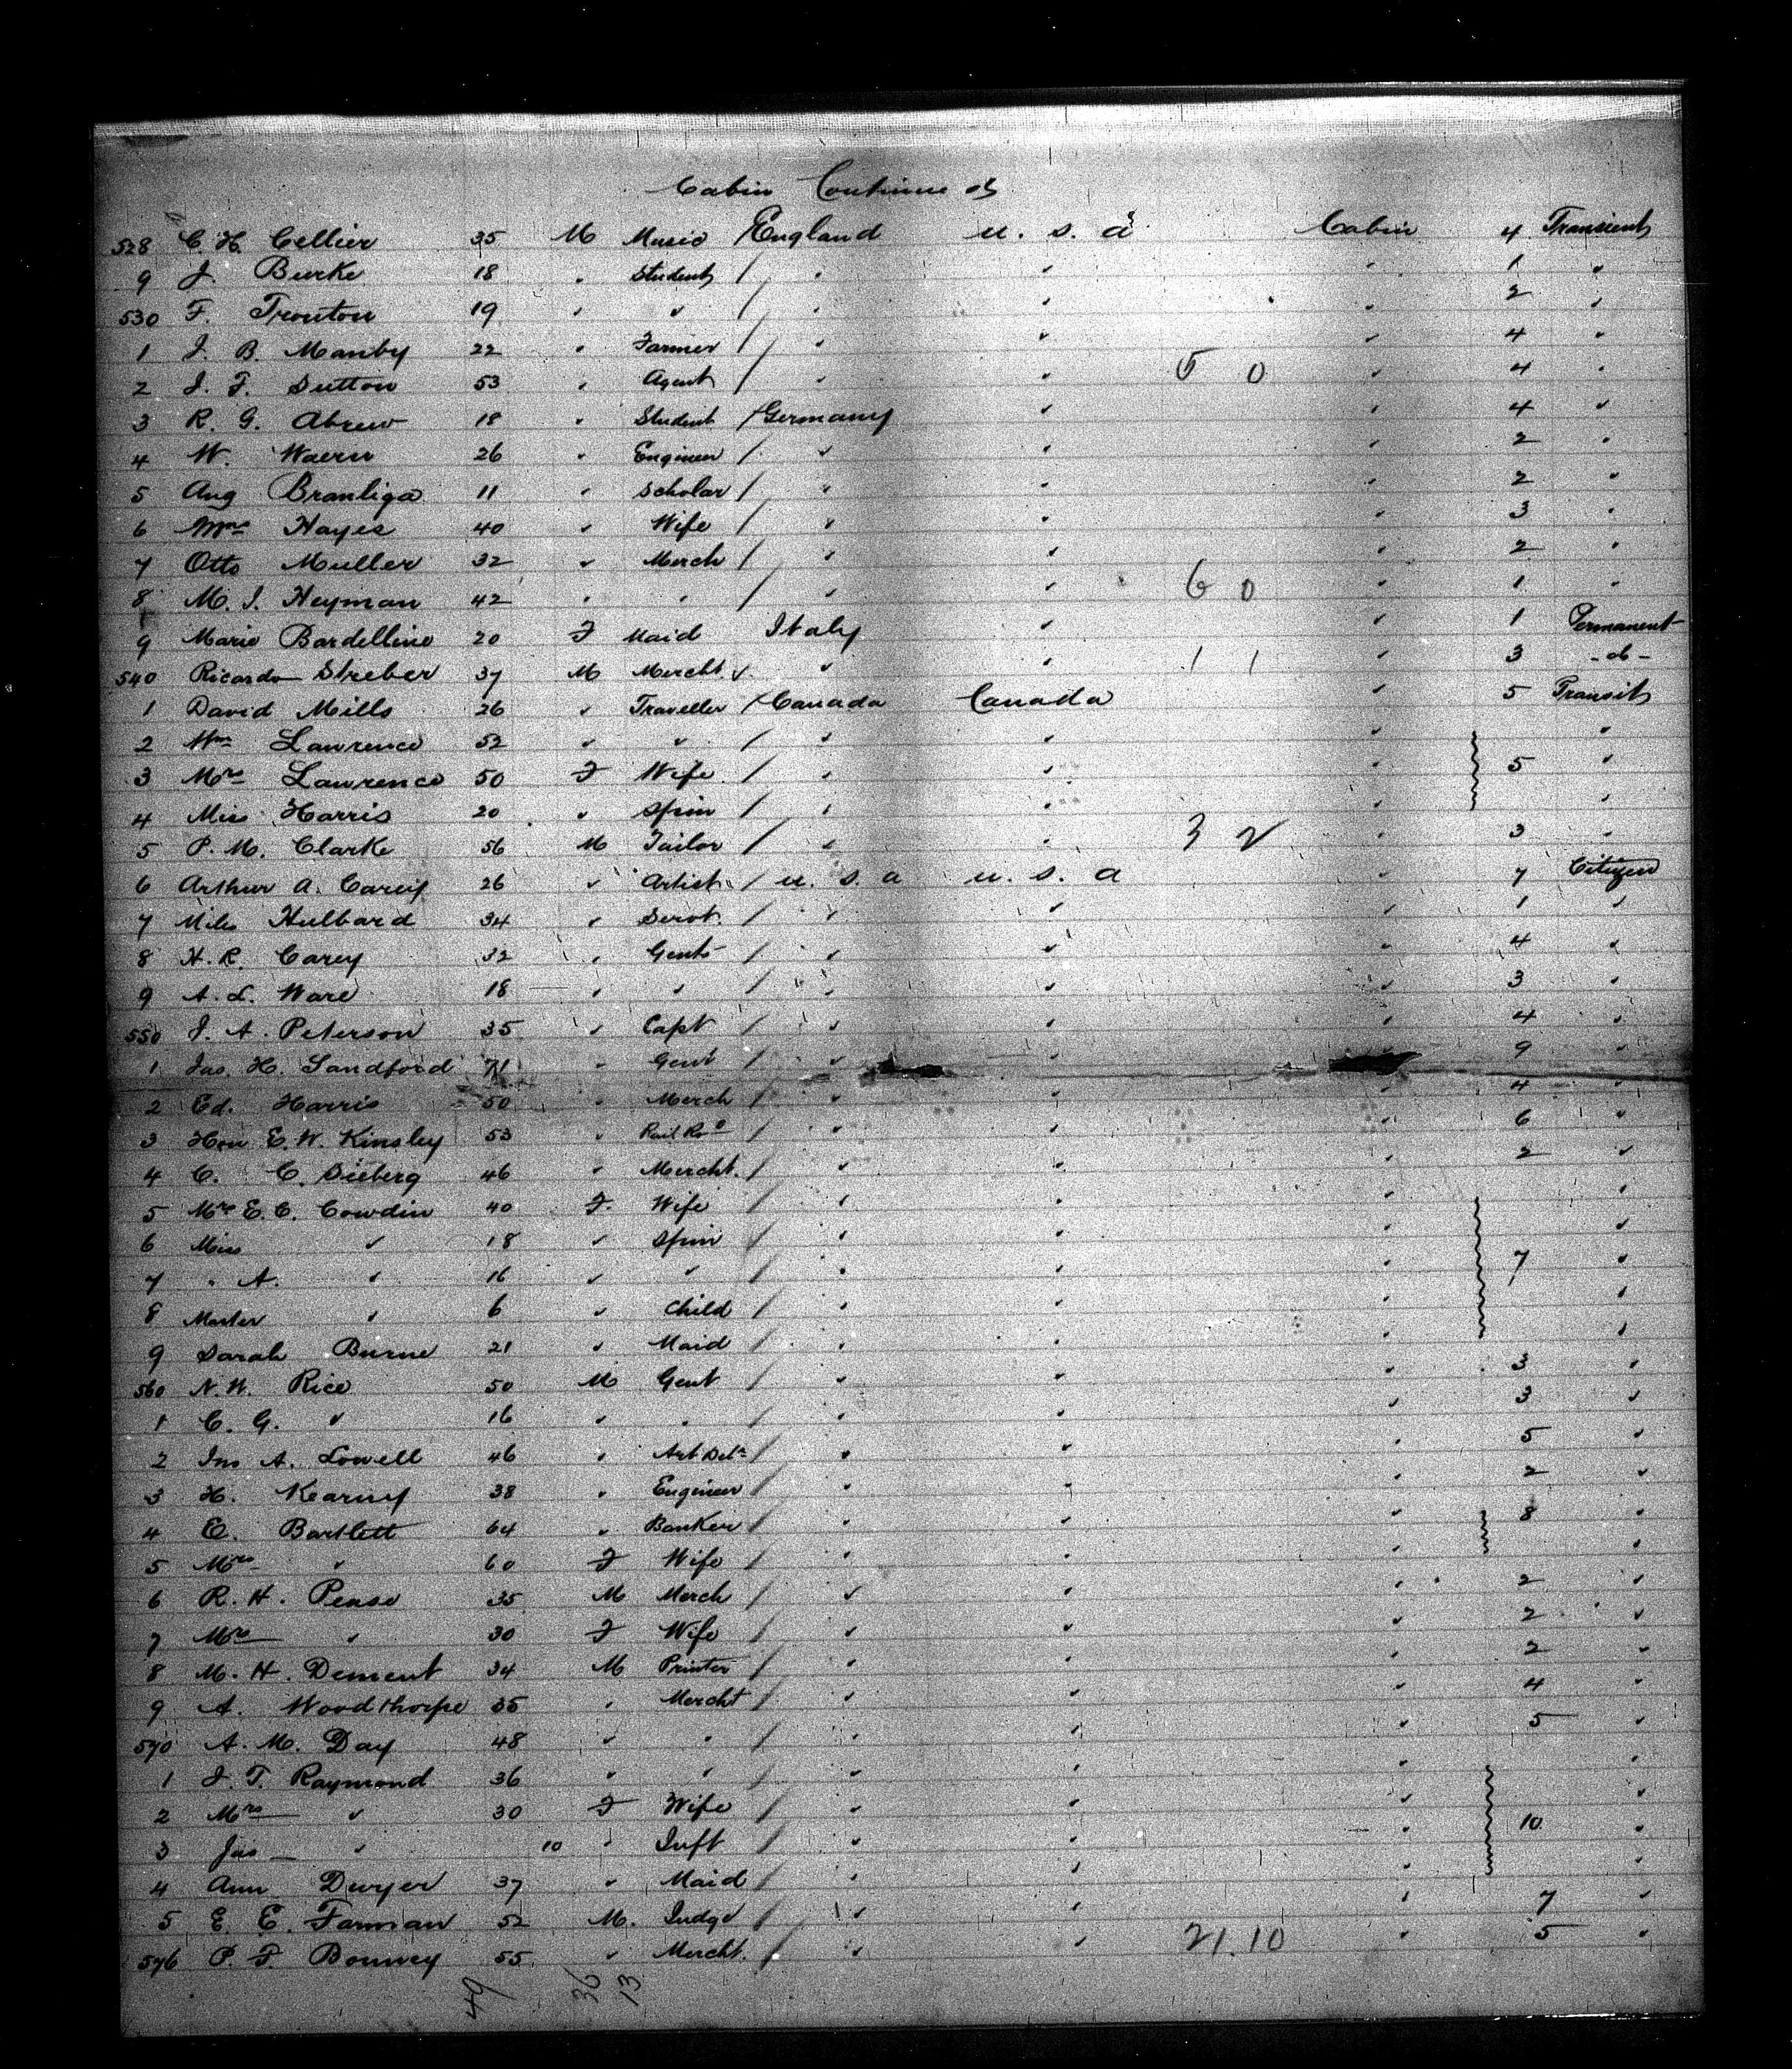 Cabin Continued
528 C. H. Cellier 35 M Music / England U. S. A Cabin 4 Transient
9 J. Burke 18 " Student / " " " 1 "
530 F. Trouton 19 " " / " " " 2 "
1 J. B. Manby 22 " Farmer / " " " 4 "
2 J. F. Sutton 53 " Agent / " " 5 0 " 4 "
3 R. G. Abrew 18 " Student / Germany " " 4 "
4 W. Waern 26 " Engineer / " " " 2 "
5 Aug Branliga 11 " Scholar / " " " 2 "
6 Mrs Hayes 40 " Wife / " " " 3 "
7 Otto Muller 32 " Merch / " " " 2 "
8 M. J. Heyman 42 " " / " " 6 0 " 1 "
9 Marie Bardellino 20 F Maid Italy " " 1 Permanent
540 Ricardo Streber 37 M Mercht " " 1 1 " 3 - do -
1 David Mills 26 " Traveller / Canada Canada " 5 Transit
2 Wm Lawrence 52 " " / " " " "
3 Mrs Lawrence 50 F Wife / " " " 5 "
4 Miss Harris 20 " Spin / " " " "
5 P. M. Clarke 56 M Tailor / " " 3 2 " 3 "
6 Arthur A. Carey 26 " Artist / U. S. A U. S. A " 7 Citizen
7 Miles Hulbard 34 " Servt. / " " " 1 "
8 H. R. Carey 32 " Gent / " " " 4 "
9 A. L. Ware 18 " " / " " " 3 "
550 J. A. Peterson 35 " Capt / " " " 4 "
1 Jas. H. Sandford 71 " Gent / " " " 9 "
2 Ed. Harris 50 " Merch / " " " 4 "
3 Hon E. W. Kinsley 53 " Rail Rd / " " " 6 "
4 C. C. Sieberg 46 " Mercht. / " " " 2 "
5 Mrs E. C. Cowdin 40 F. Wife / " " " "
6 Miss " 18 " Spin / " " " "
7 " A. " 16 " " / " " " 7 "
8 Master " 6 " Child / " " " "
9 Sarah Burne 21 " Maid / " " " "
560 N. W. Rice 50 M Gent / " " " 3 "
1 C. G. " 16 " " / " " " 3 "
2 Jno A. Lowell 46 " Art / " " " 5 "
3 H. Kearney 38 " Engineer / " " " 2 "
4 E. Bartlett 64 " Banker / " " " 8 "
5 Mrs " 60 F Wife / " " " "
6 R. H. Pease 35 M Merch / " " " 2 "
7 Mrs " 30 F Wife / " " " 2 "
8 M. H. Dement 34 M Printer / " " " 2 "
9 A. Woodthorpe 35 " Mercht / " " " 4 "
570 A. M. Day 48 " " / " " " 5 "
1 J. T. Raymond 36 " " / " " " "
2 Mrs " 30 F Wife / " " " "
3 Jas " 10 " Inft / " " " 10 "
4 Ann Dwyer 37 " Maid / " " " "
5 E. E. Farman 52 M. Judge / " " " 7 "
576 P. F. Bonney 55 " Mercht. / " " 21.10 " 5 "
49 36 13